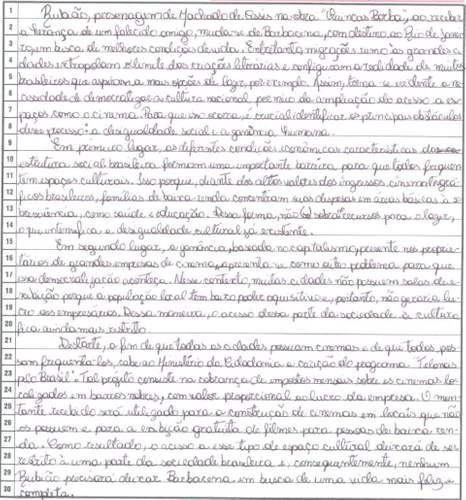 1 Rubião, personagem de Machado de Assis na obra "Quincas Borba", ao receber
2 a herança de um falecido amigo, muda-se de Barbacena, com destino ao Rio de Janei
3 ro, em busca de melhores condições de vida. Entretanto, migrações rumo às grandes ci
4 dades extrapolam o limite das criações literárias e configuram a realidade de muitos
5 brasileiros que aspiram a mais opções de lazer, por exemplo. Assim, torna-se evidente a ne
6 cessidade de democratizar a cultura nacional por meio da ampliação do acesso a es
7 paços como o cinema. Para que isso ocorra, é crucial identificar os principais obstáculos
8 desse processo: a desigualdade social e a ganância humana.
9 Em primeiro lugar, as diferentes condições econômicas características
10 estrutura social brasileira formam uma importante barreira para que todos frequen
11 tem espaços culturais. Isso porque, diante dos altos valores dos ingressos cinematográ
12 ficos brasileiros, famílias de baixa renda concentram suas despesas em áreas básicas à so
13 brevivência, como saúde e educação. Dessa forma, não "sobra" recursos para o lazer,
14 o que intensifica a desigualdade cultural já existente.
15 Em segundo lugar, a ganância, baseada no capitalismo, presente nos proprie
16 tários de grandes empresas de cinema, apresenta-se como outro problema para que
17 essa democratização aconteça. Nesse contexto, muitas cidades não possuem salas de e
18 xibição porque a população local tem baixo poder aquisitivo e, portanto, não geraria lu
19 cro aos empresários. Dessa maneira, o acesso dessa parte da sociedade à cultura
20 fica ainda mais restrito.
21 Destarte, a fim de que todas as cidades possuam cinemas e de que todos pos
22 sam frequentá-los, cabe ao Ministério da Cidadania a criação do programa "Telona
23 pelo Brasil". Tal projeto consiste na cobrança de impostos mensais sobre os cinemas lo
24 calizados em bairros nobres, com valor proporcional ao lucro da empresa. O mon
25 tante recebido será utilizado para a construção de cinemas em locais que não
26 os possuem e para a exibição gratuita de filmes para pessoas de baixa ren
27 da. Como resultado, o acesso a esse tipo de espaço cultural deixará de ser
28 restrito à uma parte da sociedade brasileira e, consequentemente, nenhum
29 Rubião precisará deixar Barbacena em busca de uma vida mais feliz e
30 completa.